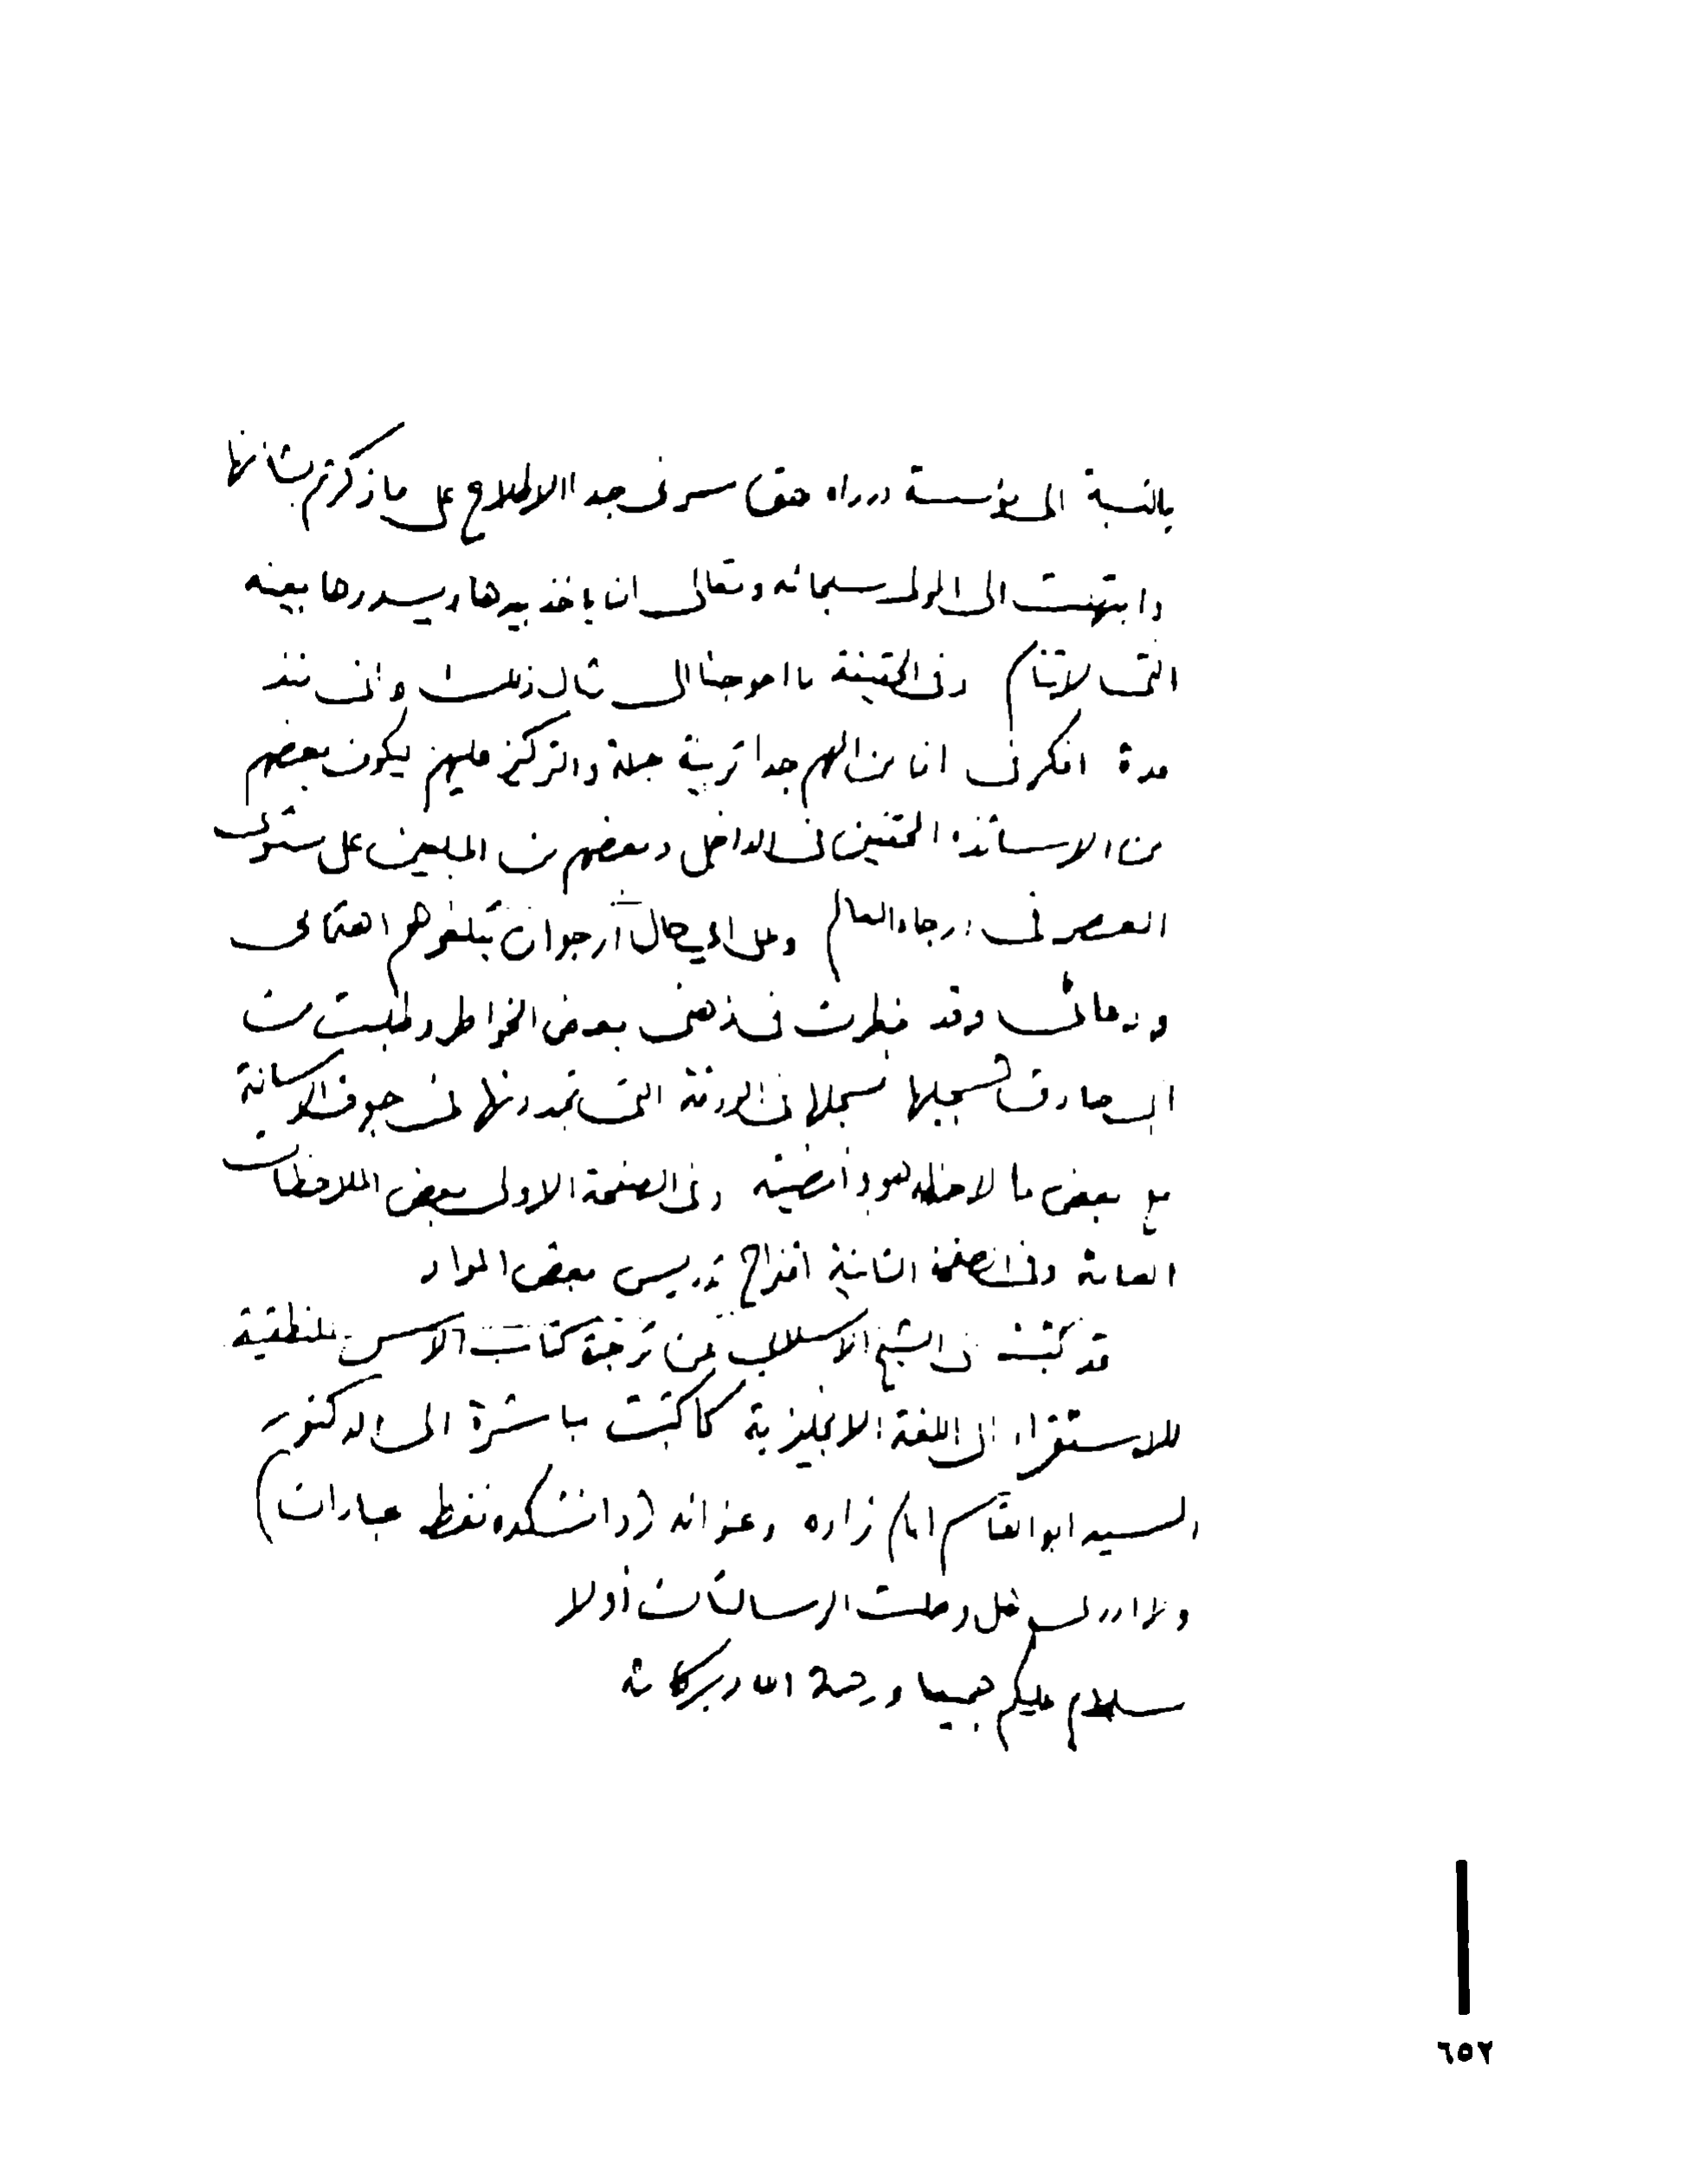 بالنسبة الى مؤسسة در راه حق سرني جدا الاطلاع على ما ذكرتم بشأنها
وابتهلت الى المولى سبحانه وتعالى ان ياخذ بيدها ويسددها بعينه
التي لا تنام وفي الحقيقة ما احوجنا الى مثال ذلك واني منذ
مدة افكر في ان من المهم جدا تربية جملة والتركيز عليهم ليكون بعضهم
من الاساتذة المحققين في الداخل وبعضهم من المبلغين على مستوى
العصر في ارجاء العالم وعلى اي حال أرجو ان تبلغوهم اهتمامي
ودعائي وقد خطرت في ذهني بعض الخواطر وطلبت من
السيد صادق تسجيلها فسجلها في الورقة التي تجدونها في جوف الرسالة
مع بعض ما لاحظه هو وأمضيته وفي الصفحة الاولى بعض الملاحظات
العامة وفي الصفحة الثانية اقتراح تدريس بعض المواد
قد كتبت الى الشيخ الاسلامي عن ترجمة كتاب الاسس المنطقية
للاستقراء الى اللغة الانجليزية كما كتبت مباشرة الى الدكتور
السيد ابو القاسم امام زاده وعنوانه (دانشكده نفط عبادان)
ولا ادري هل وصلت الرسالتان أو لا
سلام عليكم جميعا ورحمة الله وبركاته
٦٥٢